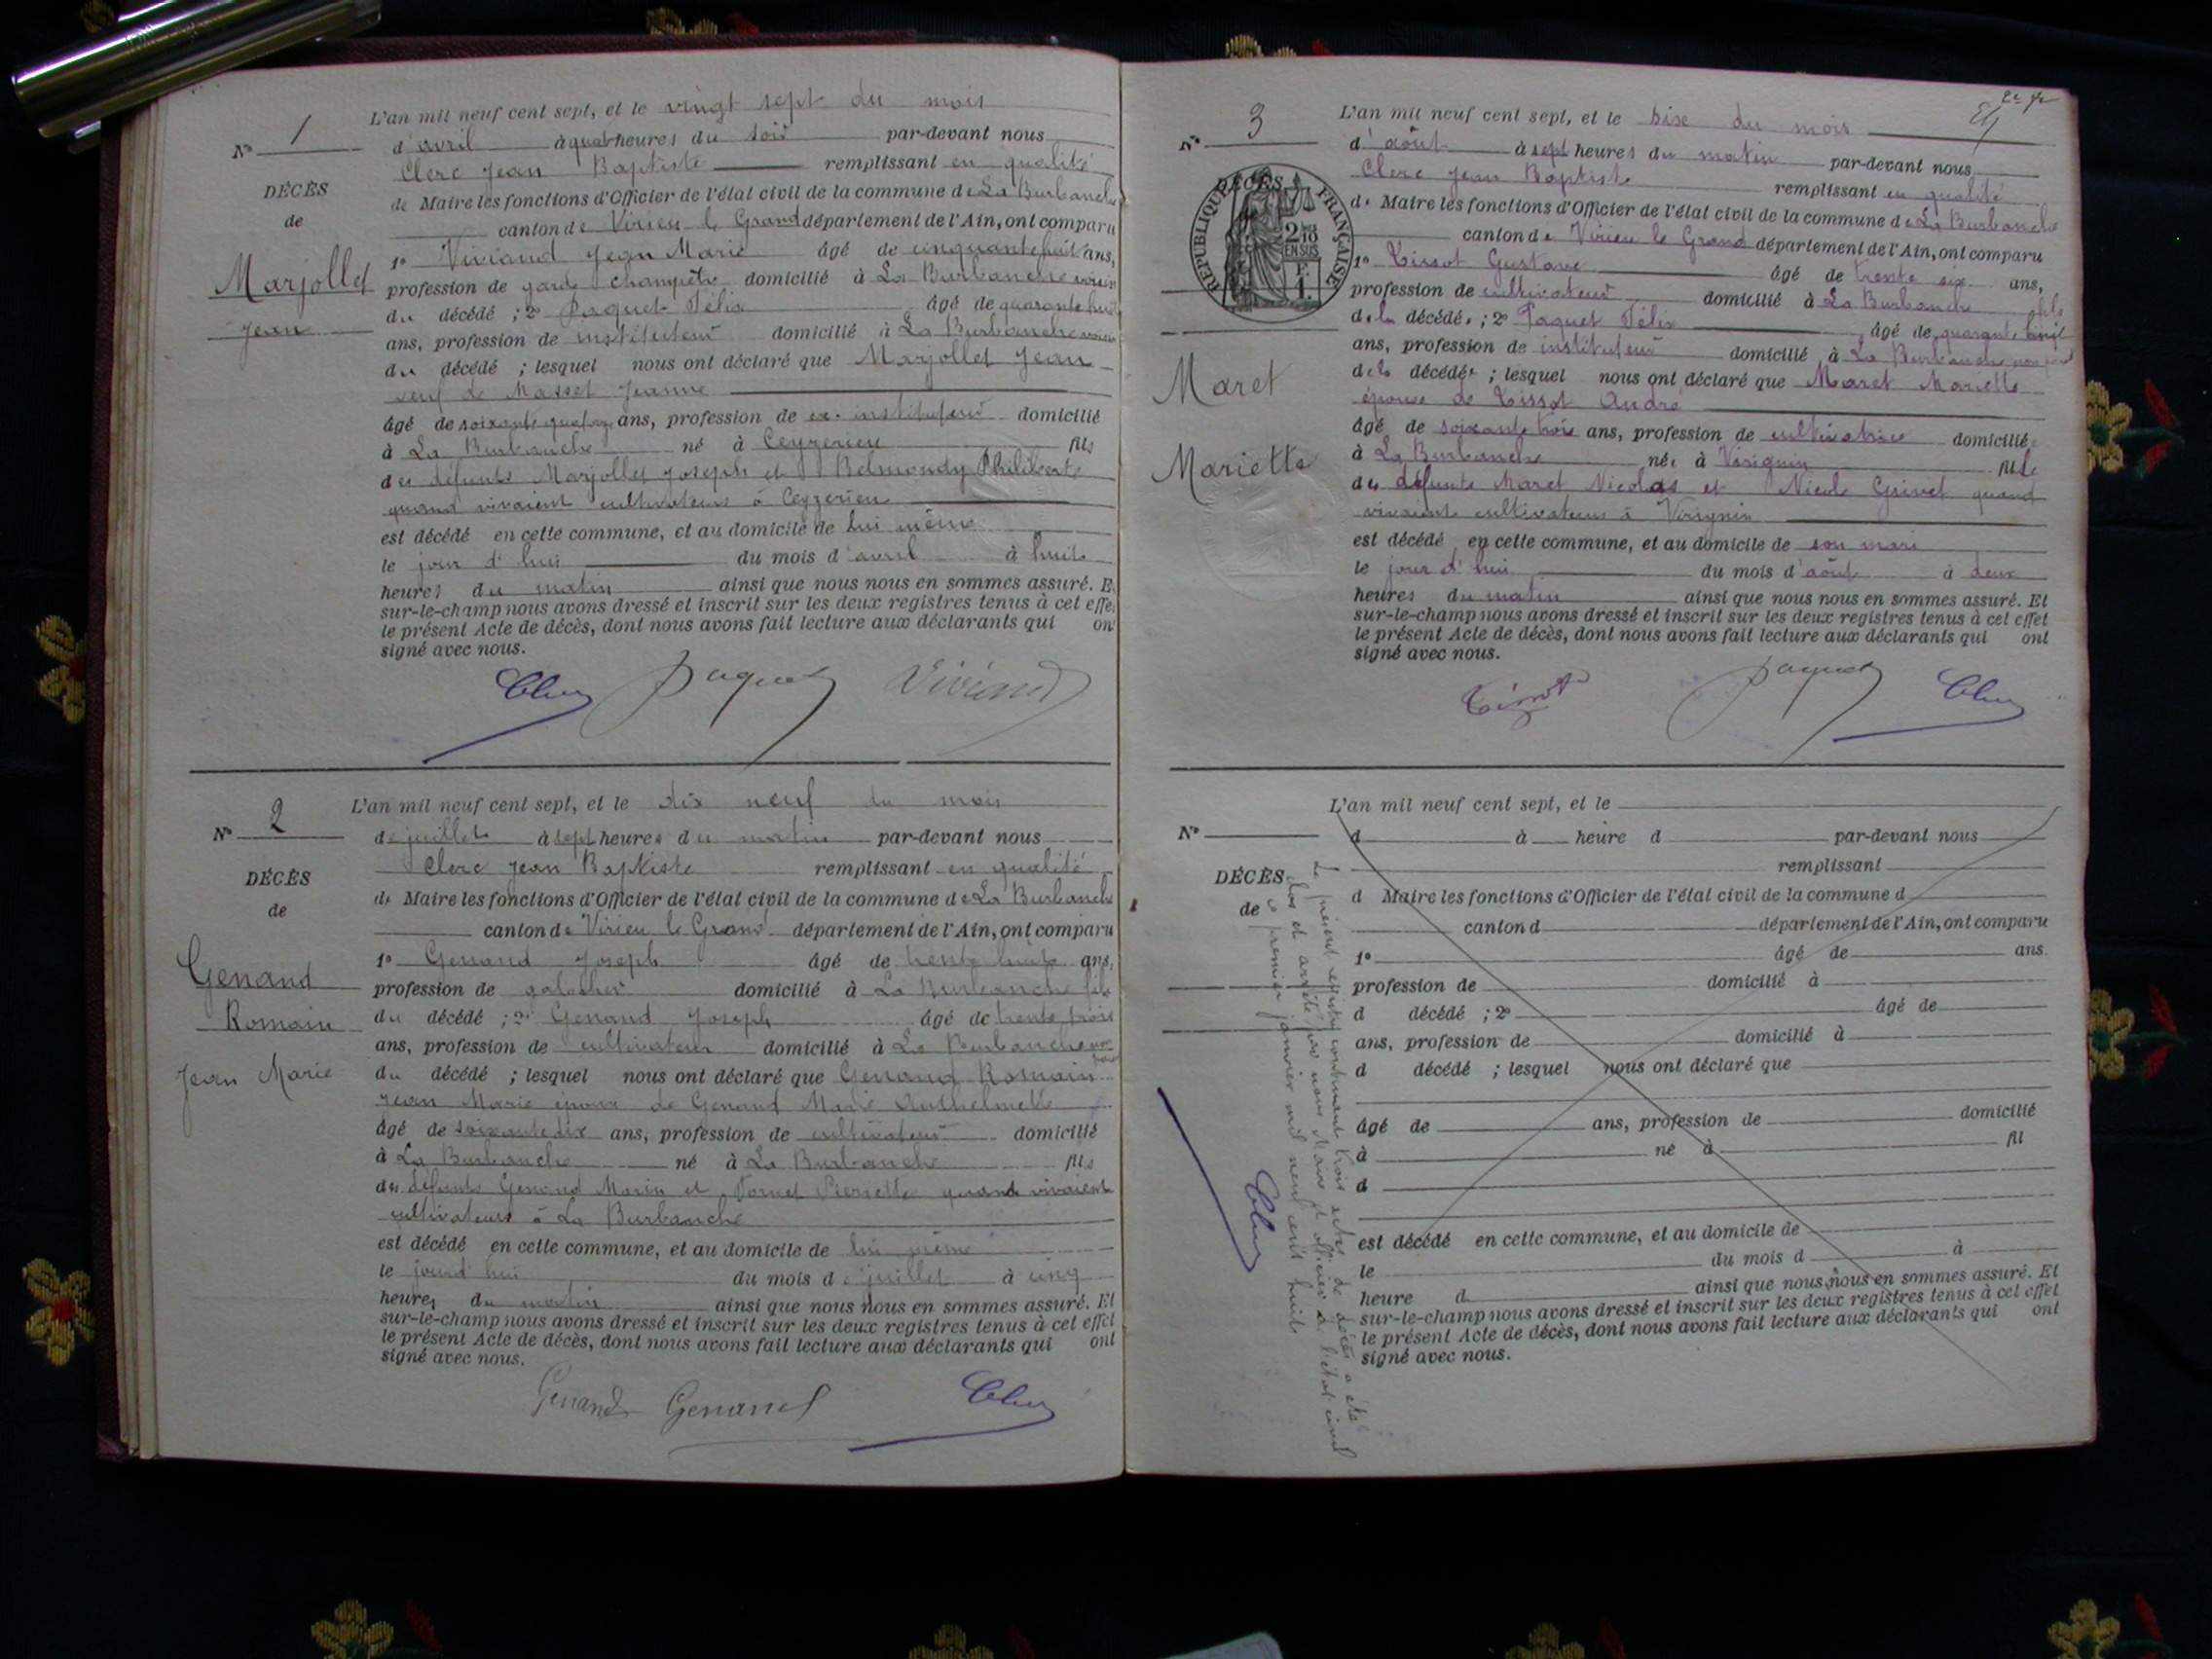 N° 1
DÉCÈS
de
Marjollet
Jean
L'an mil neuf cent sept, et le vingt sept du mois
d'avril à quatre heures du soir par-devant nous
Clerc Jean Baptiste remplissant en qualité
de Maire les fonctions d'Officier de l'état civil de la commune de La Burbanche
canton de Virieu le Grand département de l'Ain, ont comparu
1° Viviand Jean Marie âgé de cinquante huit ans,
profession de garde champêtre domicilié à La Burbanche voisin
du décédé ; 2° Paquet Félix âgé de quarante huit
ans, profession de instituteur domicilié à La Burbanche voisin
du décédé ; lesquel nous ont déclaré que Marjollet Jean
veuf de Masset Jeanne
âgé de soixante quatorze ans, profession de ex-instituteur domicilié
à La Burbanche né à Ceyzerieu fils
des défunts Marjollet Joseph et Belmondy Philiberte
quand vivaient cultivateurs à Ceyzerieu
est décédé en cette commune, et au domicile de lui même
le jour d'hui du mois d'avril à huit
heures du matin ainsi que nous nous en sommes assuré. E
sur-le-champ nous avons dressé et inscrit sur les deux registres tenus à cet effe
le présent Acte de décès, dont nous avons fait lecture aux déclarants qui on
signé avec nous.
Clerc Paquet Viviand
N° 2
DÉCÈS
de
Genand
Romain
Jean Marie
L'an mil neuf cent sept, et le dix neuf du mois
de juillet à sept heures du matin par-devant nous
Clerc Jean Baptiste remplissant en qualité
de Maire les fonctions d'Officier de l'état civil de la commune de La Burbanche
canton de Virieu le Grand département de l'Ain, ont comparu
1° Genand Joseph âgé de trente huit ans,
profession de galocher domicilié à La Burbanche fils
du décédé ; 2° Genand Joseph âgé de trente trois
ans, profession de cultivateur domicilié à La Burbanche
du décédé ; lesquel nous ont déclaré que Genand Romain
Jean Marie époux de Genand Marie Anthelmette
âgé de soixante dix ans, profession de cultivateur domicilié
à La Burbanche né à La Burbanche fils
des défunts Genand Marin et Fornet Pierrette quand vivaient
cultivateurs à La Burbanche
est décédé en cette commune, et au domicile de lui même
le jour d'hui du mois de juillet à cinq
heures du matin ainsi que nous nous en sommes assuré. Et
sur-le-champ nous avons dressé et inscrit sur les deux registres tenus à cet effet
le présent Acte de décès, dont nous avons fait lecture aux déclarants qui ont
signé avec nous.
Genand Genand Clerc
N° 3
DÉCÈS
RÉPUBLIQUE FRANÇAISE
2/10 EN SUS
F. 1.
Maret
Mariette
L'an mil neuf cent sept, et le six du mois
d'août à sept heures du matin par-devant nous
Clerc Jean Baptiste remplissant en qualité
de Maire les fonctions d'Officier de l'état civil de la commune de La Burbanche
canton de Virieu le Grand département de l'Ain, ont comparu
1° Tissot Gustave âgé de trente six ans,
profession de cultivateur domicilié à La Burbanche fils
de la décédée ; 2° Paquet Félix âgé de quarante
ans, profession de instituteur domicilié à La Burbanche
de la décédée ; lesquel nous ont déclaré que Maret Mariette
épouse de Tissot André
âgé de soixante trois ans, profession de cultivatrice domiciliée
à La Burbanche née à Virignin fille
des défunts Maret Nicolas et Nicole Grivet quand
vivaient cultivateurs à Virignin
est décédé en cette commune, et au domicile de son mari
le jour d'hui du mois d'août à deux
heures du matin ainsi que nous nous en sommes assuré. Et
sur-le-champ nous avons dressé et inscrit sur les deux registres tenus à cet effet
le présent Acte de décès, dont nous avons fait lecture aux déclarants qui ont
signé avec nous.
Tissot Paquet Clerc
N°
DÉCÈS
de
L'an mil neuf cent sept, et le
d à heure d par-devant nous
remplissant
d Maire les fonctions d'Officier de l'état civil de la commune d
canton d département de l'Ain, ont comparu
1° âgé de ans.
profession de domicilié à
d décédé ; 2° âgé de
ans, profession de domicilié à
d décédé ; lesquel nous ont déclaré que
âgé de ans, profession de domicilié
à né à fil
d
est décédé en cette commune, et au domicile de
le du mois d à
heure d ainsi que nous nous en sommes assuré. Et
sur-le-champ nous avons dressé et inscrit sur les deux registres tenus à cet effet
le présent Acte de décès, dont nous avons fait lecture aux déclarants qui ont
signé avec nous.
Le présent registre contenant trois actes de décès a été
clos et arrêté par nous Maire et officier de l'état civil
ce premier janvier mil neuf cent huit
Clerc